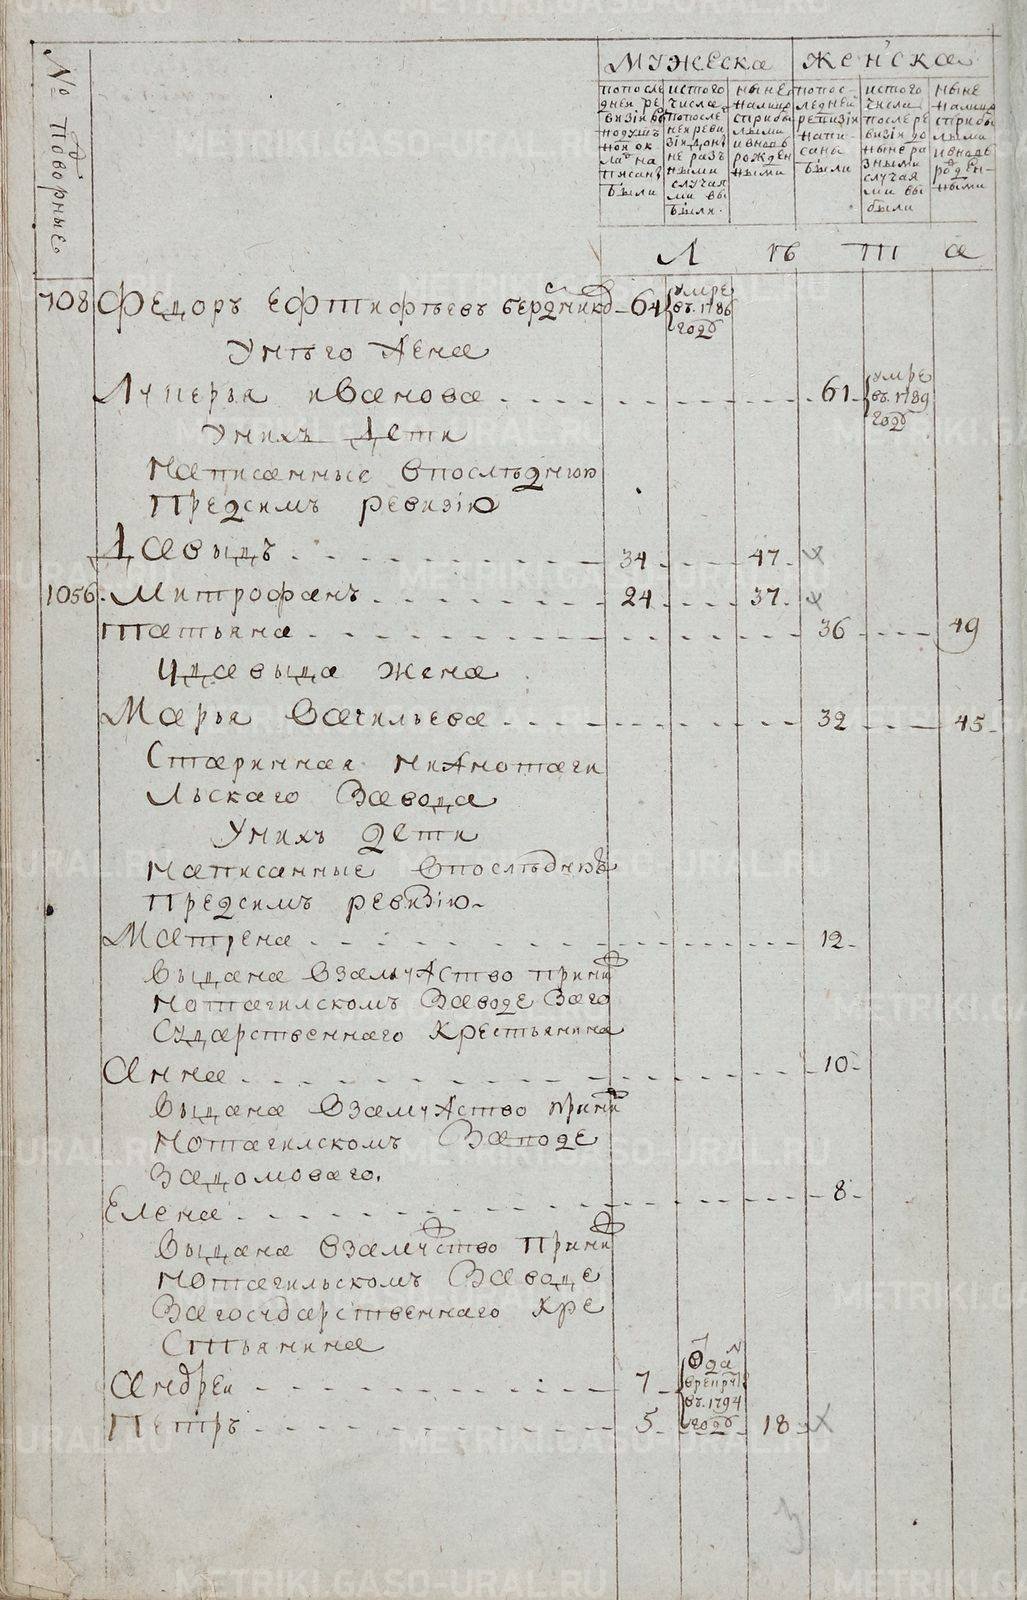 № Подворные
МУЖЕСКА
ЖЕНСКА
попосле
дней ре
визiи
подуш
ной ок
ла на
писан
были
истого
числа
попосле
ней реви
зiи дон
не раз
ными
случая
ми вы
были.
ныне
налицо
сприбы
лыми
ивновь
рожден
ными
попос-
ледней
ревизiи
напи-
саны
были
истого
числа
после ре
визiи до
ныне ра
зными
случая
ми вы
были
ныне
налицо
сприбы
лыми
ивновь
рожден-
ными
Л ѣ т а
708 Федоръ Ефтифѣевъ Бердников 64 умре
въ 1786
годѣ
Унего жена
Лукерья Иванова 61 умре
въ 1789
годѣ
Унихъ дети
Написанные впоследнюю
Предсимъ ревизiю
Давыдъ 34 47
1056 Митрофанъ 24 37
Татьяна 36 49
Удавыда жена
Марья Васильева 32 45
Старинная нижнотаги
льскаго Завода
Унихъ дети
Написанные впоследнюю
Предсимъ ревизiю
Матрена 12
Выдана взамужство приниж
нотагилскомъ Заводе Заго
сударственнаго крестьянина
Анна 10
Выдана взамужство приниж
нотагилскомъ Заводе
Задомоваго.
Елена 8
Выдана взамужство приниж
нотагильскомъ Заводе
Загосударственнаго кре
стьянина
Андреи 7 Отдан
врекруты
въ 1794
годѣ
Петръ 5 18
METRIKI.GASO-URAL.RU